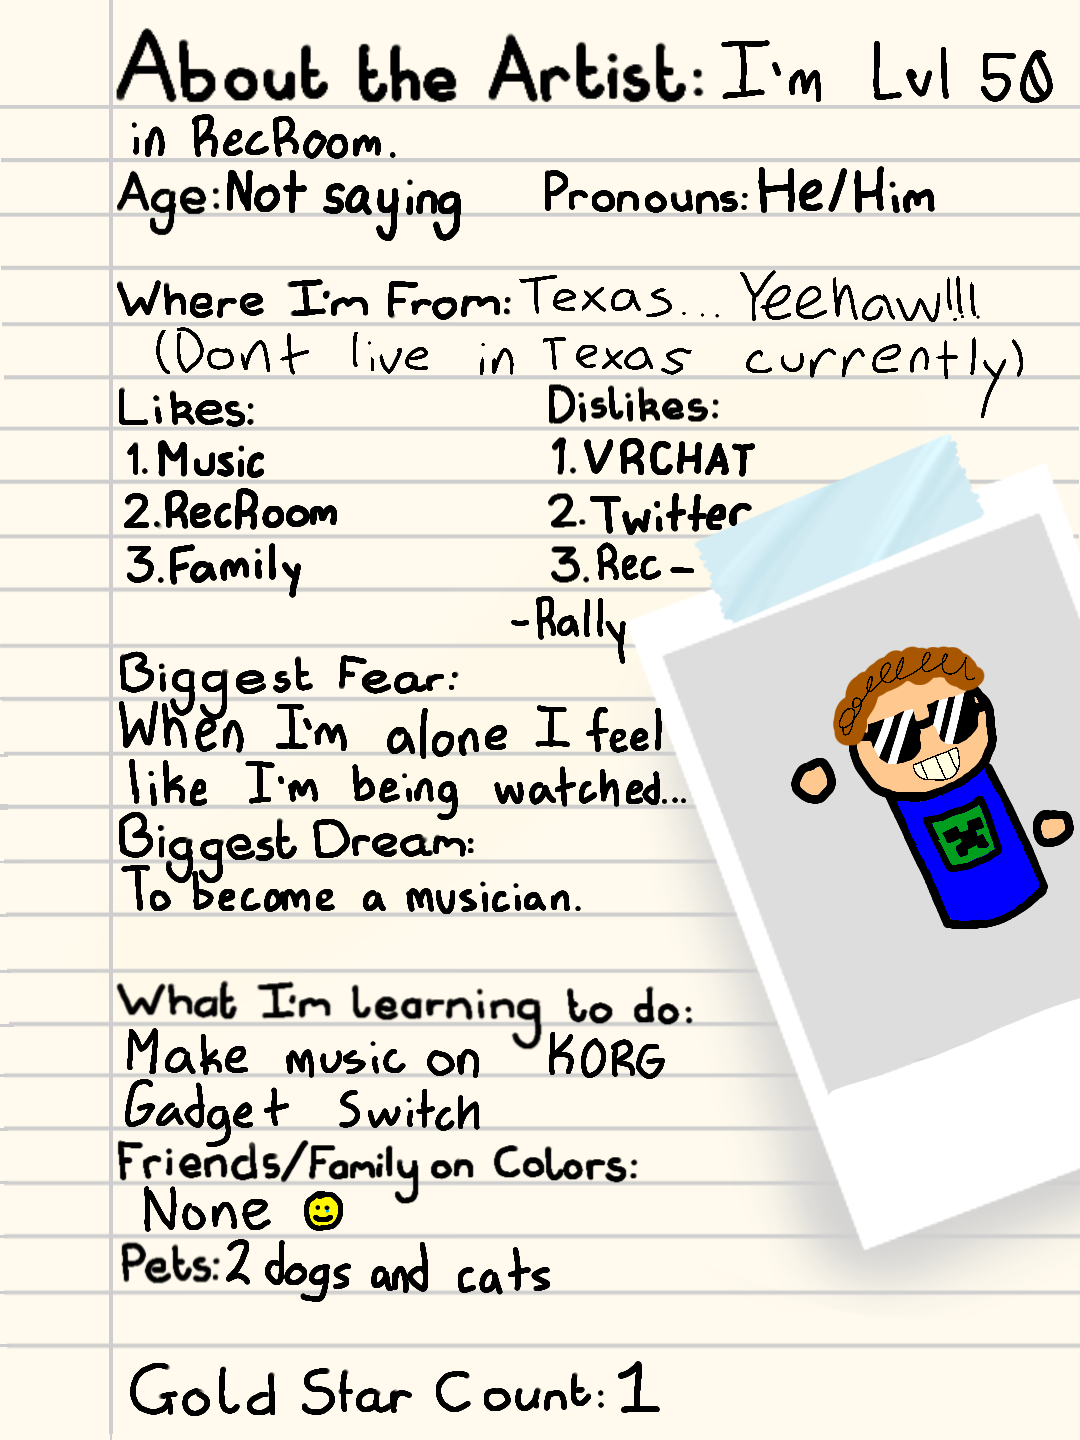 About the Artist: I'm Lvl 50
in RecRoom.
Age: Not saying Pronouns: He/Him
Where I'm From: Texas... Yeehaw!!!
(Dont live in Texas currently)
Likes: Dislikes:
1. Music 1. VRCHAT
2. RecRoom 2. Twitter
3. Family 3. Rec-
-Rally
Biggest Fear:
When I'm alone I feel
like I'm being watched...
Biggest Dream:
To become a musician.
What I'm learning to do:
Make music on KORG
Gadget Switch
Friends/Family on Colors:
None 🙂
Pets: 2 dogs and cats
Gold Star Count: 1